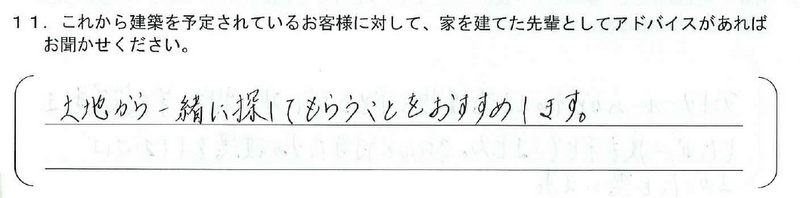 11．これから建築を予定されているお客様に対して、家を建てた先輩としてアドバイスがあれば
お聞かせください。
土地から一緒に探してもらうことをおすすめします。